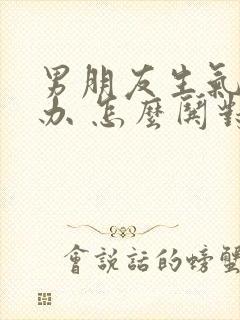 男朋友生氣
办 怎麼鬨對
會說話的螃蟹